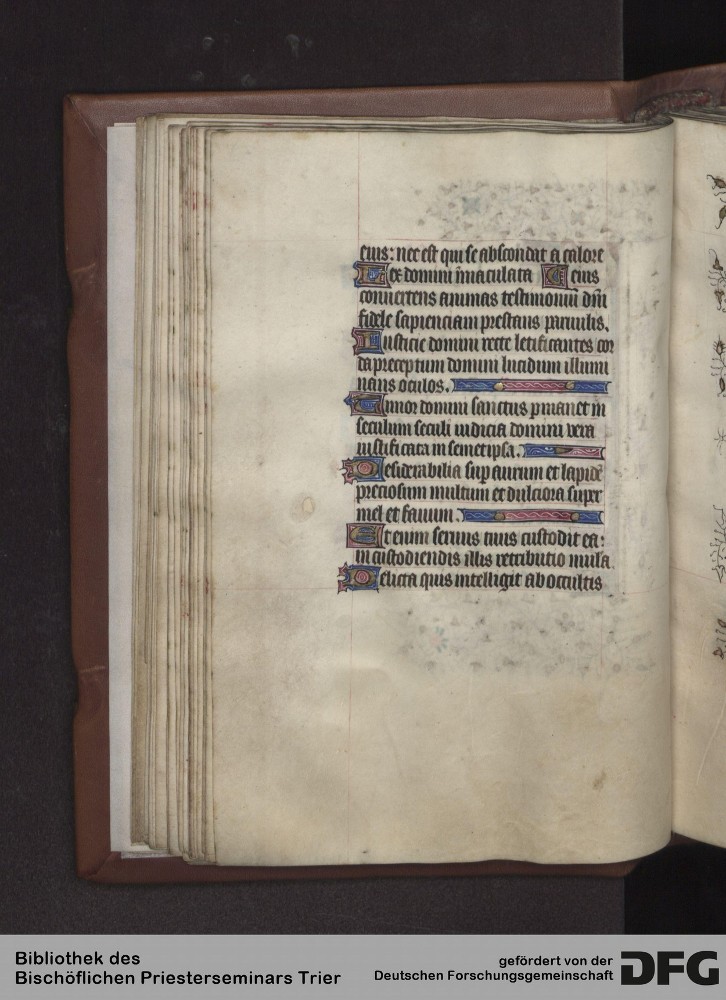 eius: nec est qui se abscondat a calore
Lex domini inmaculata C eius
conuertens animas testimoniũ dñi
fidele sapienciam prestans paruulis.
Iusticie domini recte letificantes cor
da preceptum domini lucidum illumi
nans oculos.
Timor domini sanctus pmanet in
seculum seculi iudicia domini vera
iustificata in semetipsa.
Desiderabilia sup aurum et lapidẽ
preciosum multum et dulciora super
mel et fauum.
Etenim seruus tuus custodit ea:
in custodiendis illis retributio multa.
Delicta quis intelligit ab occultis
Bibliothek des
Bischöflichen Priesterseminars Trier
gefördert von der
Deutschen Forschungsgemeinschaft
DFG